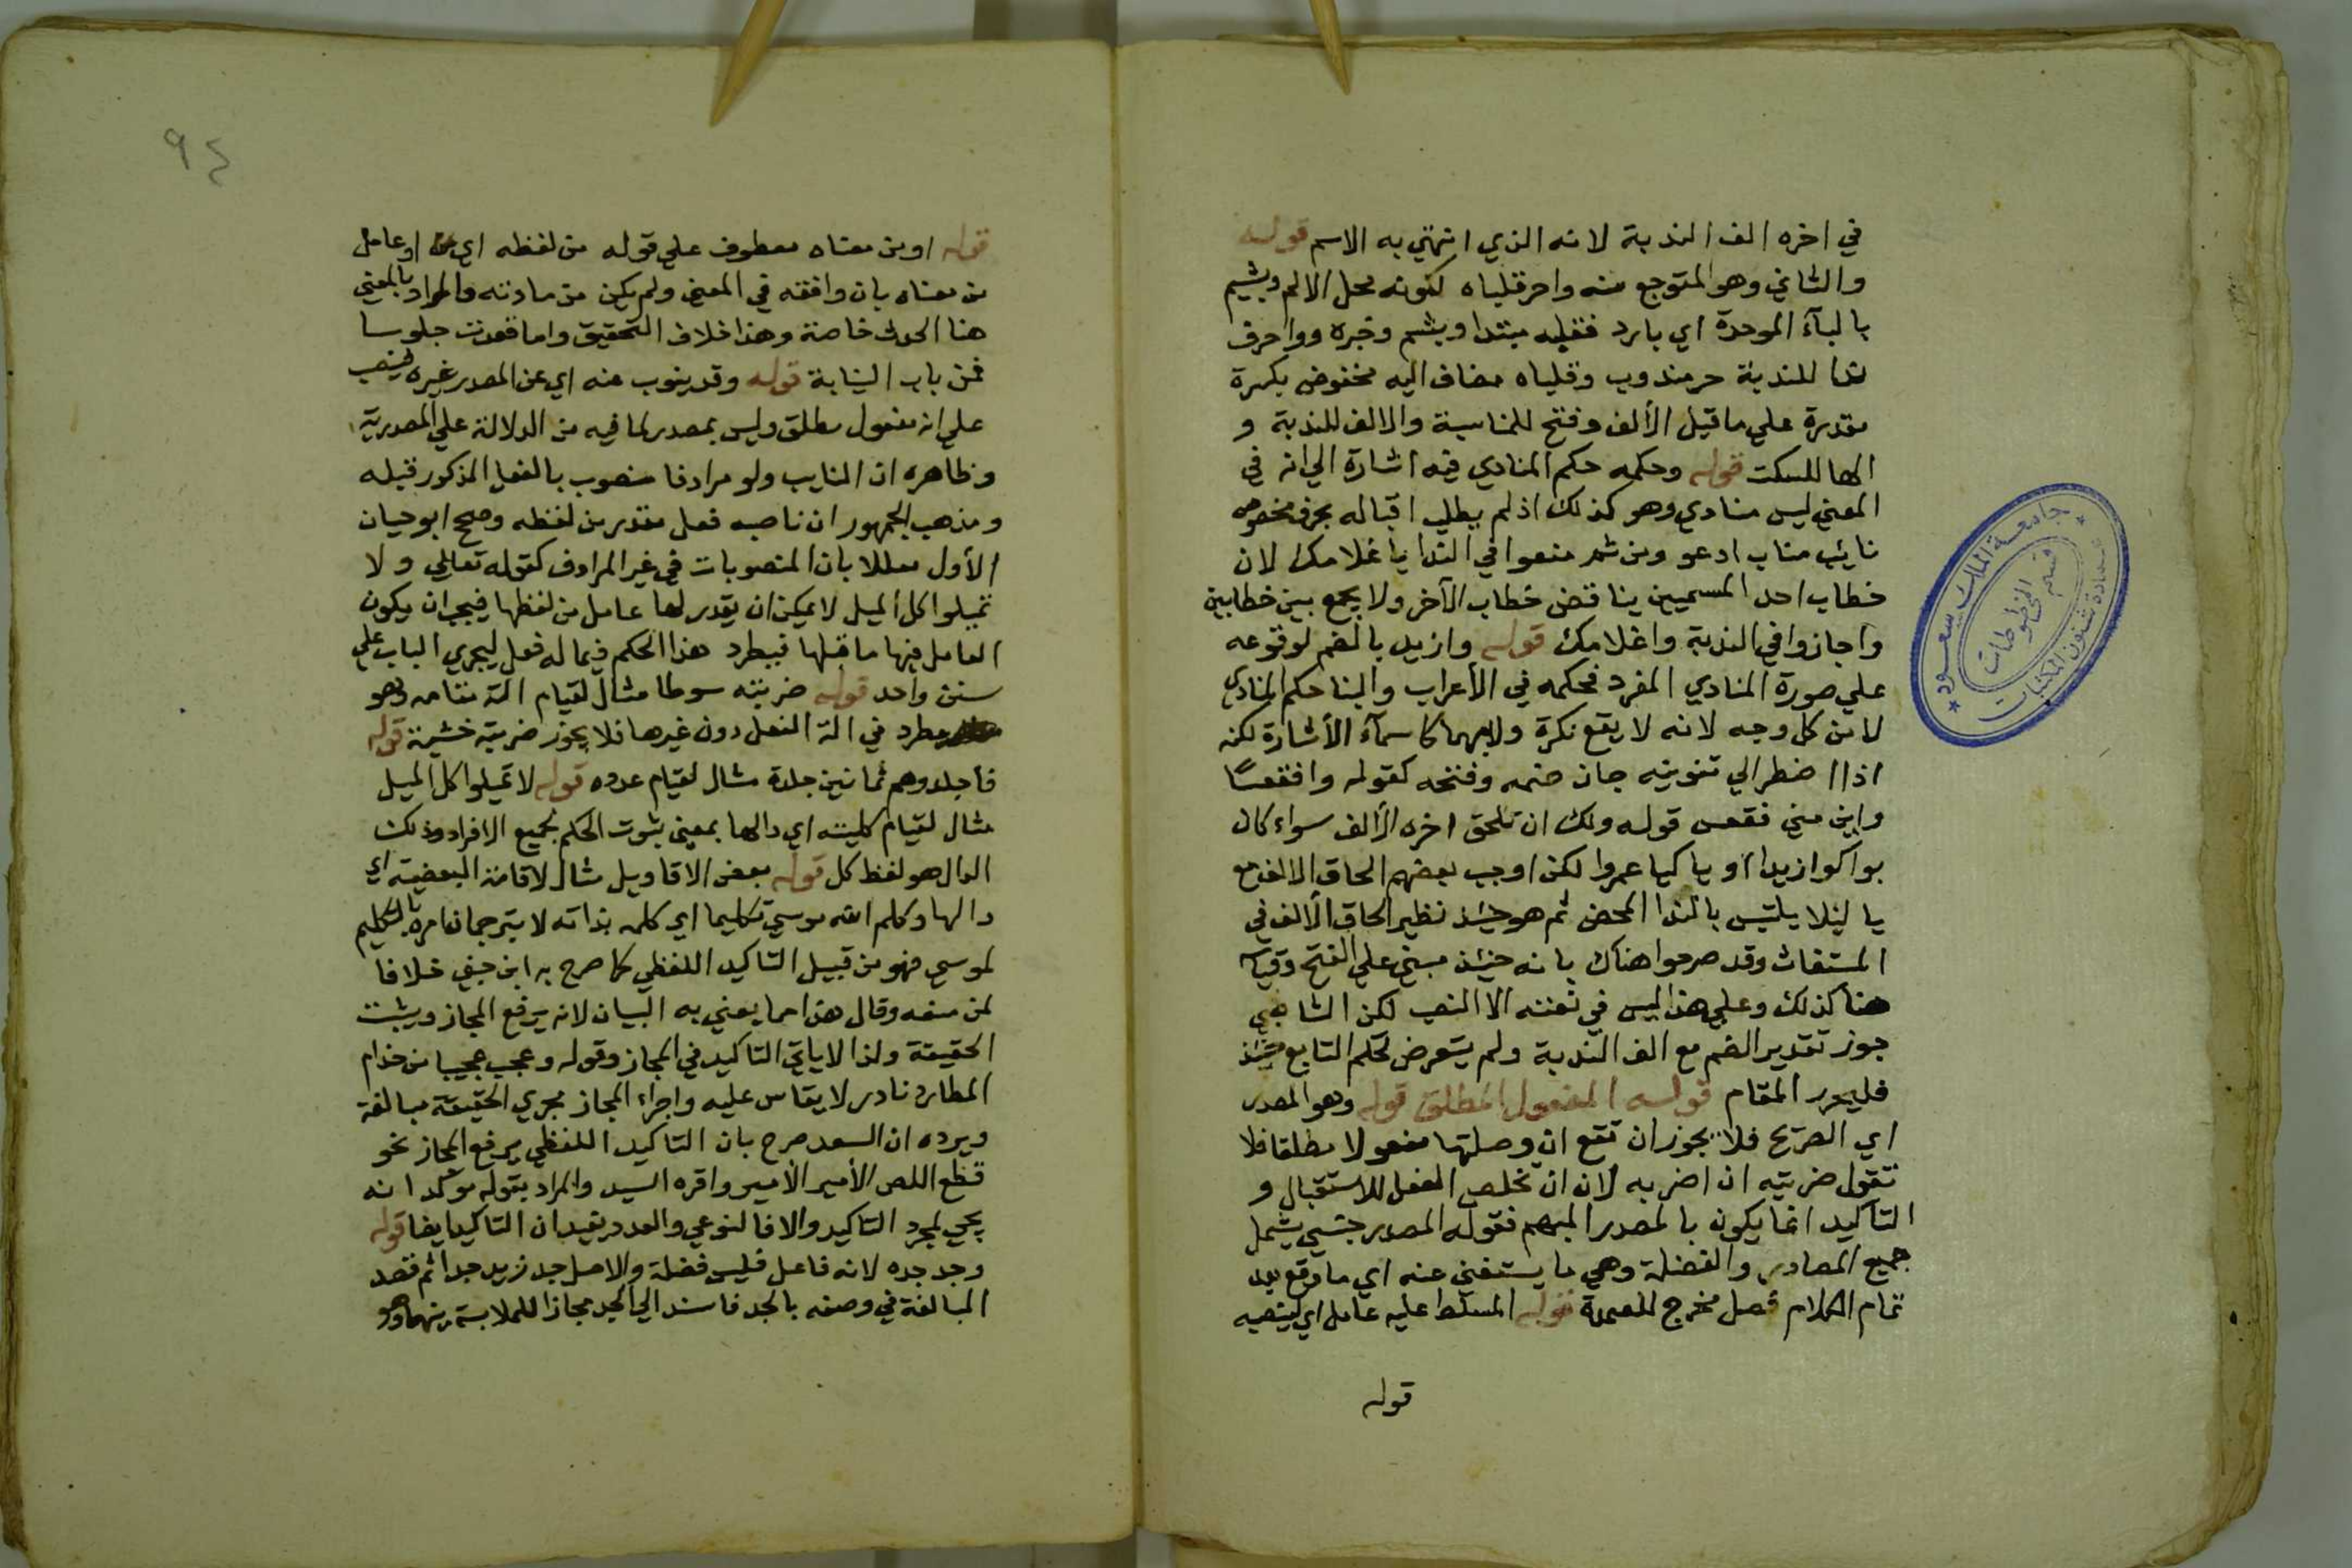 في اخره الف الندبة لانه الذي انتهي به الاسم قوله
والثاني وهو المتوجع منه واحر قلباه لكونه محل الالم وبشيم
بالبآء الموحدة اي بارد فقلبه مبتدا وبشم وخبره ووا حرف
ندا للندبة حر مندوب وقلباه مضاف اليه مخفوض بكسرة
مقدرة علي ما قبل الألف وفتح للمناسبة والالف للندبة و
الها للسكت قوله وحكمه حكم المنادي فيه اشارة الي انه في
المعني ليس منادي وهو كذلك اذ لم يطلب اقباله بحرف مخصوص
نائب مناب ادعو ومن ثم منعوا في الندا يا غلامك لان
خطاب احد المسميين يناقض خطاب الآخر ولا يجمع بين خطابين
واجازوا في الندبة واغلامك قوله وازيد بالضم لوقوعه
علي صورة المنادي المفرد فحكمه في الأعراب والبنا حكم المنادي
لا من كل وجه لانه لا يقع نكرة ولا مبهما كاسمآء الأشارة لكنه
اذا اضطر الي تنوينه جاز ضمه وفتحه كقوله وافقعسًا
واين مني فقعس قوله ولك ان تلحق اخره الألف سواء كان
بوا كوا زيدا او يا كيا عمروا لكن اوجب بعضهم الحاق الالف مع
يا ليلا يلتبس بالندا المحض ثم هو حينئذ نظير الحاق الألف في
المستغاث وقد صرحوا هناك بانه حينئذ مبني علي الفتح وقياسه
هنا كذلك وعلي هذا ليس في نعته الا النصب لكن الشاطبي
جوز تقدير الضم مع الف الندبة ولم يتعرض لحكم التابع حينئذ
فليحرر المقام قوله المفعول المطلق قوله وهو المصدر
اي الصريح فلا يجوز ان تقع ان وصلتها مفعولا مطلقا فلا
تقول ضربته ان اضربه لان ان تخلص الفعل للاستقبال و
التأكيد انما يكون بالمصدر المبهم فقوله المصدر جنس يشمل
جميع المصادر والفضلة وهي ما يستغني عنه اي ما وقع بعد
تمام الكلام فصل مخرج للعمدة قوله المسلط عليه عامل اي ينصبه
قوله
٩٤
قوله او من معناه معطوف علي قوله من لفظه اي او عامل
من معناه بان وافقه في المعني ولم يكن من مادته والمراد بالمعني
هنا الحدث خاصة وهذا خلاف التحقيق واما قعدت جلوسا
فمن باب النيابة قوله وقد ينوب عنه اي عن المصدر غيره فينصب
علي انه مفعول مطلق وليس بمصدر لما فيه من الدلالة علي المصدرية
وظاهره ان النايب ولو مرادفا منصوب بالفعل المذكور قبله
ومذهب الجمهور ان ناصبه فعل مقدر من لفظه وصحح ابو حيان
الأول معللا بان المنصوبات في غير المرادف كقوله تعالي ولا
تميلوا كل الميل لا يمكن ان يقدر لها عامل من لفظها فيجب ان يكون
العامل فيها ما قبلها فيطرد هذا الحكم فيما له فعل ليجري الباب علي
سنن واحد قوله ضربته سوطا مثال لقيام الة مقامه وهو
مطرد في الة الفعل دون غيرها فلا يجوز ضربته خشبة قوله
فاجلدوهم ثمانين جلدة مثال لقيام عدده قوله لا تميلوا كل الميل
مثال لقيام كليته اي دالها بمعني ثبوت الحكم لجميع الافراد وذلك
الدال هو لفظ كل قوله بعض الاقاويل مثال لاقامة البعضية اي
دالها وكلم الله موسي تكليما اي كلمه بذاته لا بترجمان امره بالتكليم
لموسي فهو من قبيل التاكيد اللفظي كما صرح به ابن جني خلافا
لمن منعه وقال هذا مما يعني به البيان لانه يرفع المجاز ويثبت
الحقيقة ولذا لا ياتي التاكيد في المجاز وقوله وعجب عجيبا من جذام
المطارد نادر لا يقاس عليه واجراء المجاز مجري الحقيقة مبالغة
ويرده ان السعد صرح بان التاكيد اللفظي يرفع المجاز نحو
قطع اللص الأمير الأمير واقره السيد والمراد بقوله موكدا انه
يجي لمجرد التاكيد والا فالنوعي والعدد يفيدان التاكيد ايضا قوله
وجد جده لانه فاعل فليس فضلة والاصل جد زيد جدا ثم قصد
المبالغة في وصفه بالجد فاسند الي الجد مجازا للملابسة بينهما وهو
جامعة الملك سعود
عمادة شئون المكتبات
قسم المخطوطات